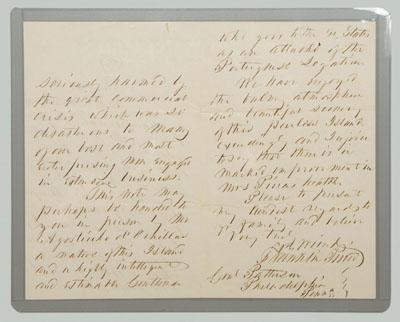 Seriously harmed by
the great Commercial
crisis which was so
disastrous to many
of our best and most
enterprising men engaged
in extensive business.
This note may
perhaps be handed to
you in person by Mr
a native of this Island
and a highly intelligent
and estimable Gentleman
goes to the U. States
as an attaché of the
Portuguese Legation.
We have enjoyed
the balmy atmosphere
and beautiful scenery
of this peerless Island
exceedingly and I rejoice
to say that there is a
marked improvement in
Mrs Pierces health.
Please to present
my kindest regards to
yr family and believe
me
Yr friend
Franklin Pierce
Genl Patterson
Philadelphia
Penna